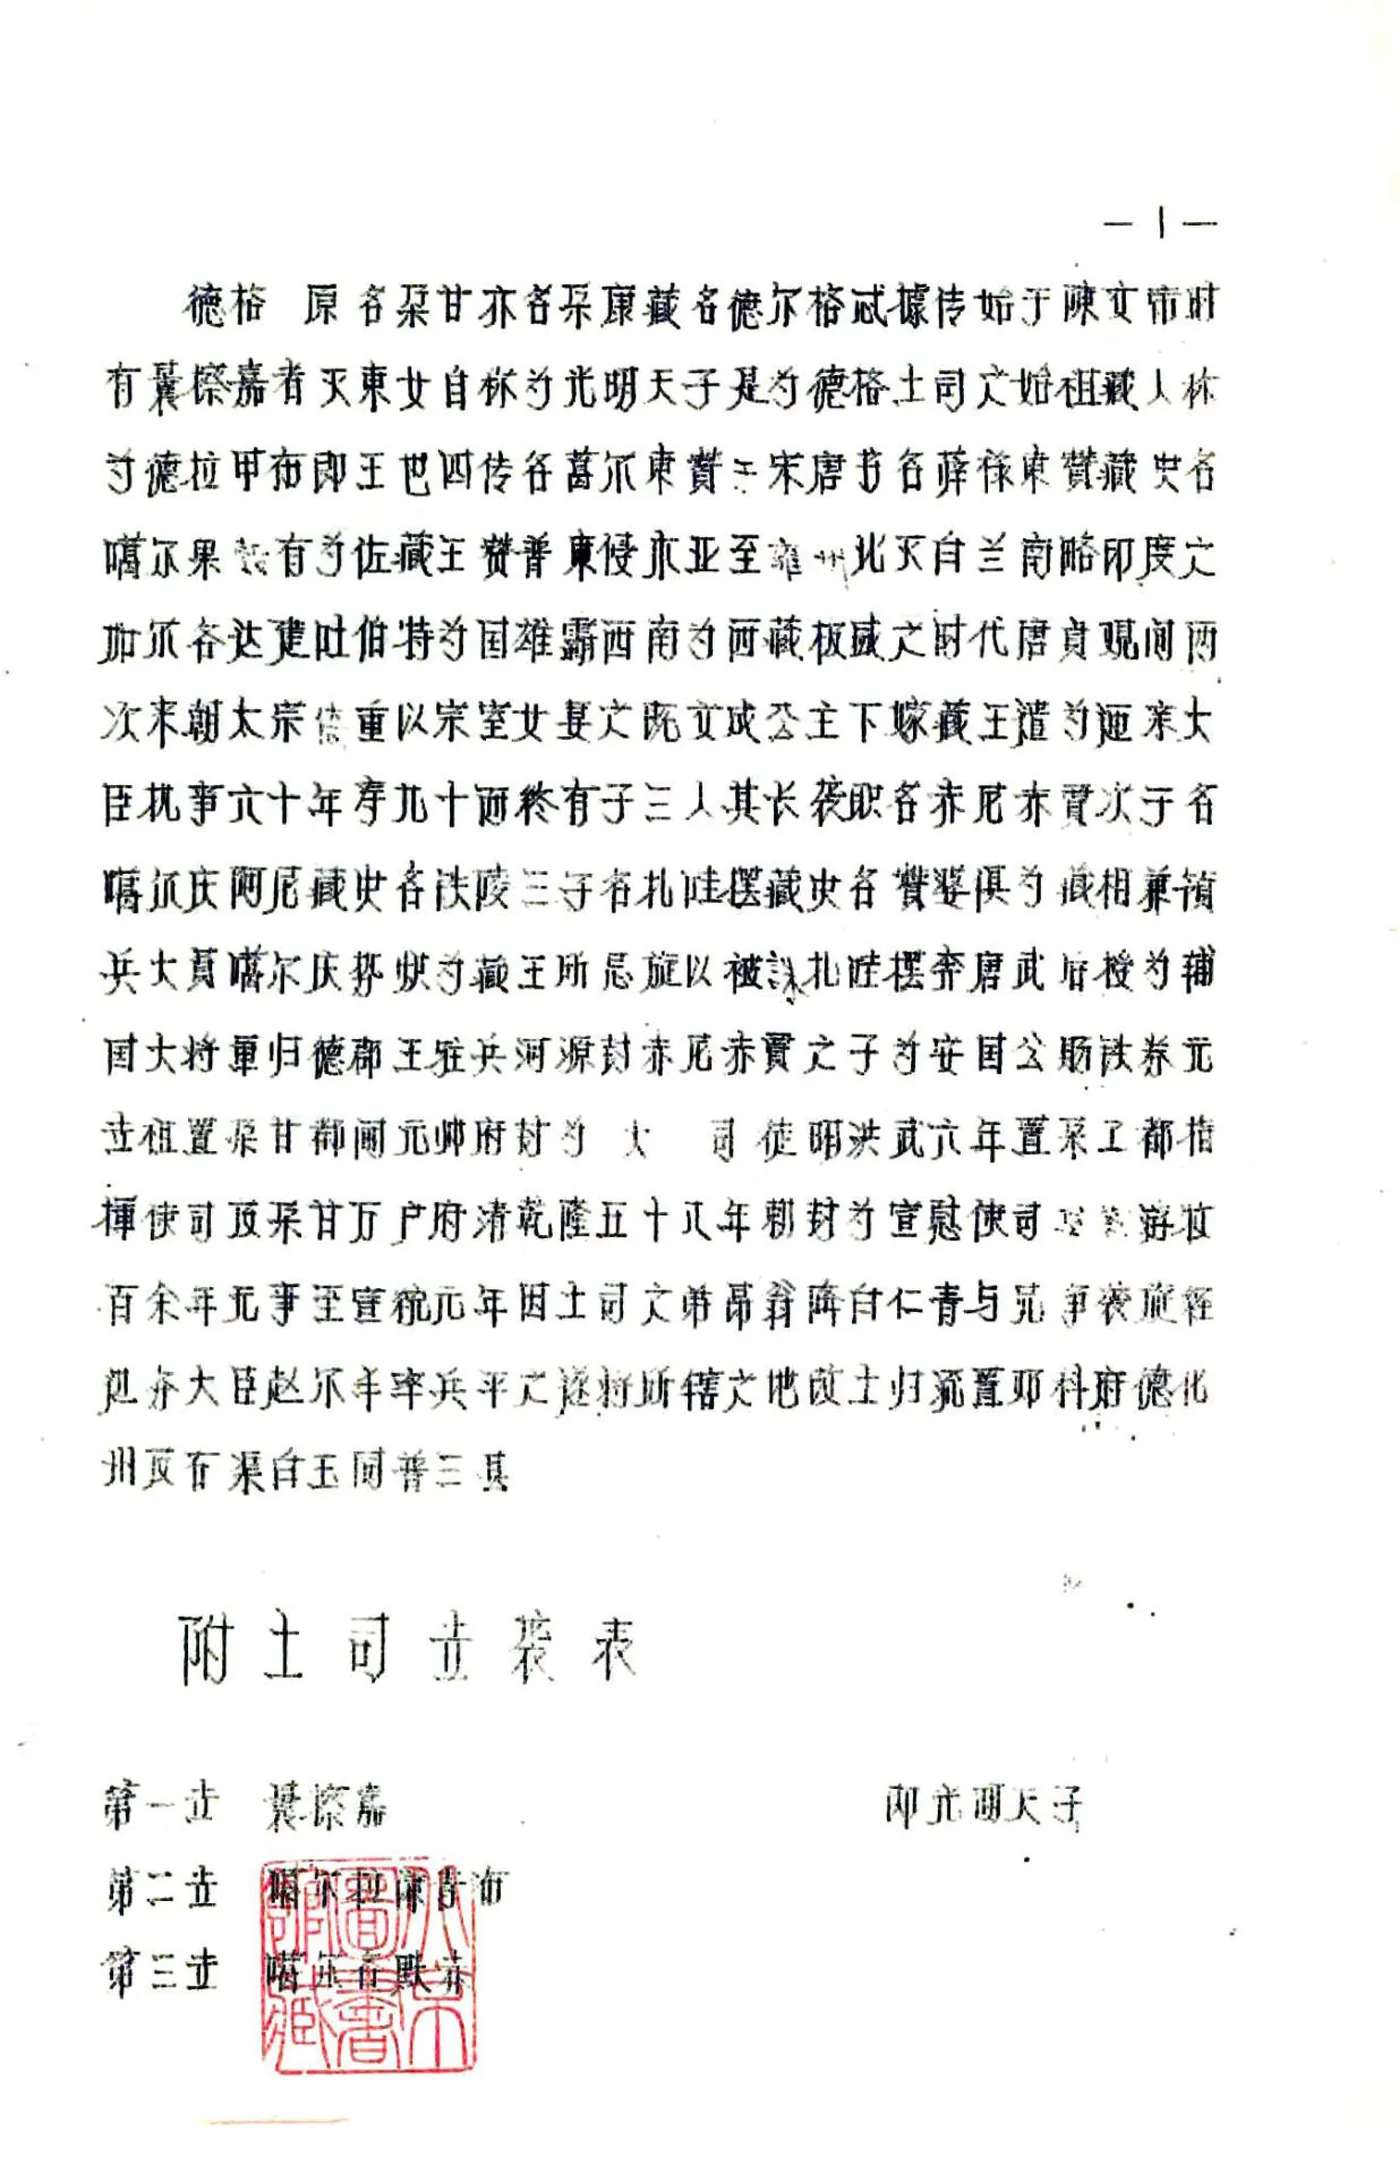 —1—
德格 原名朶甘亦名朶康藏名德尔格忒據传始于陳文帝时
有曩擦嘉者灭東女自称为光明天子是为德格土司之始祖藏人称
为德拉甲布即王也四传名葛尔東赞 宋唐书名薛禄東赞藏史名
噶尔果 有为佐藏王赞普東侵 亚至雍州北灭白兰南略印度之
加尔各达建吐伯特为国雄霸西南为西藏极盛之时代唐貞观间两
次来朝太宗 重以宗室女妻之既文成公主下嫁藏王遣为迎亲大
臣执事六十年寿九十而终有子三人其长袭职名赤尼赤賈次子名
噶尔庆阿尼藏史名铁陵三子名扎哇摆藏史名赞婆俱为藏相兼领
兵大員噶尔庆 为藏王所忌旋以被 扎哇摆奔唐武后授为辅
国大将軍归德郡王驻兵河源封赤尼赤賈之子为安国公赐铁券元
世祖置朶甘都闻元帅府封为大 司徒明洪武六年置朶工都指
揮使司及朶甘万户府清乾隆五十八年朝封为宣慰使司 游牧
百余年无事至宣統元年因土司之弟昂翁降白仁青与兄爭袭旋経
边务大臣赵尔丰率兵平之遂将所辖之地改土归流置邓科府德化
州及石渠白玉同普三县
附土司世袭表
第一世 曩擦嘉 即光明天子
第二世 噶尔 布
第三世 噶尔 默
八不圖書館藏